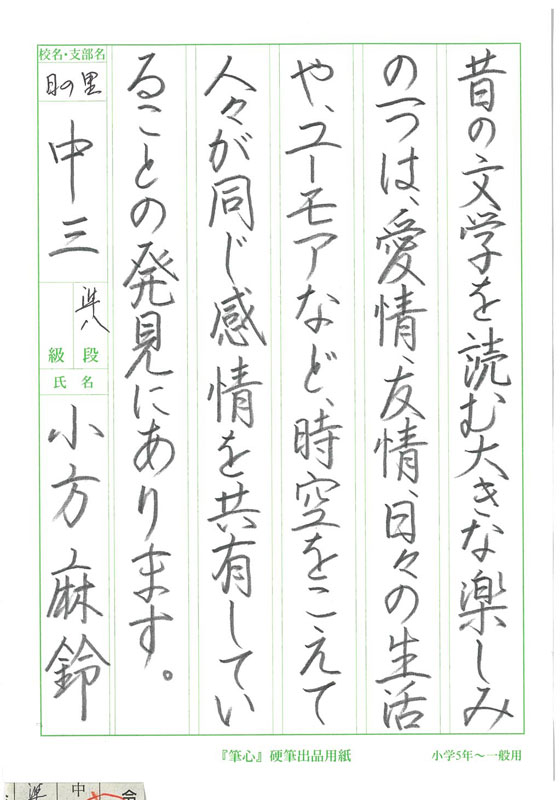 昔の文学を読む大きな楽しみ
の一つは、愛情、友情、日々の生活
や、ユーモアなど、時空をこえて
人々が同じ感情を共有してい
ることの発見にあります。
校名・支部名
日の里
中三
準八
級 段
氏名
小方麻鈴
『筆心』硬筆出品用紙
小学5年～一般用
中